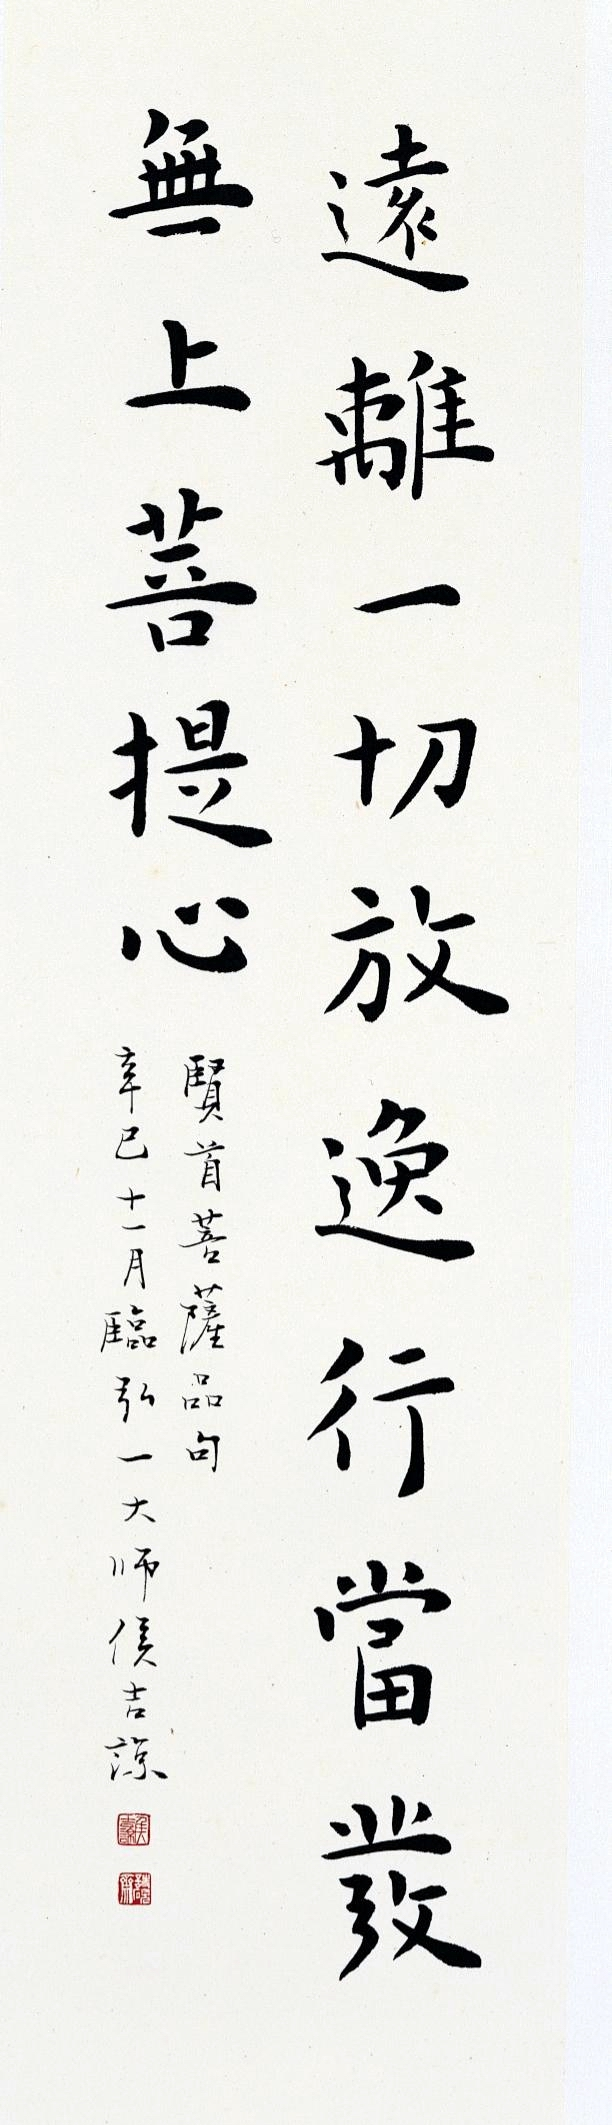 遠離一切放逸行當發
無上菩提心
賢首菩薩品句
辛巳十一月臨弘一大師侯吉諒